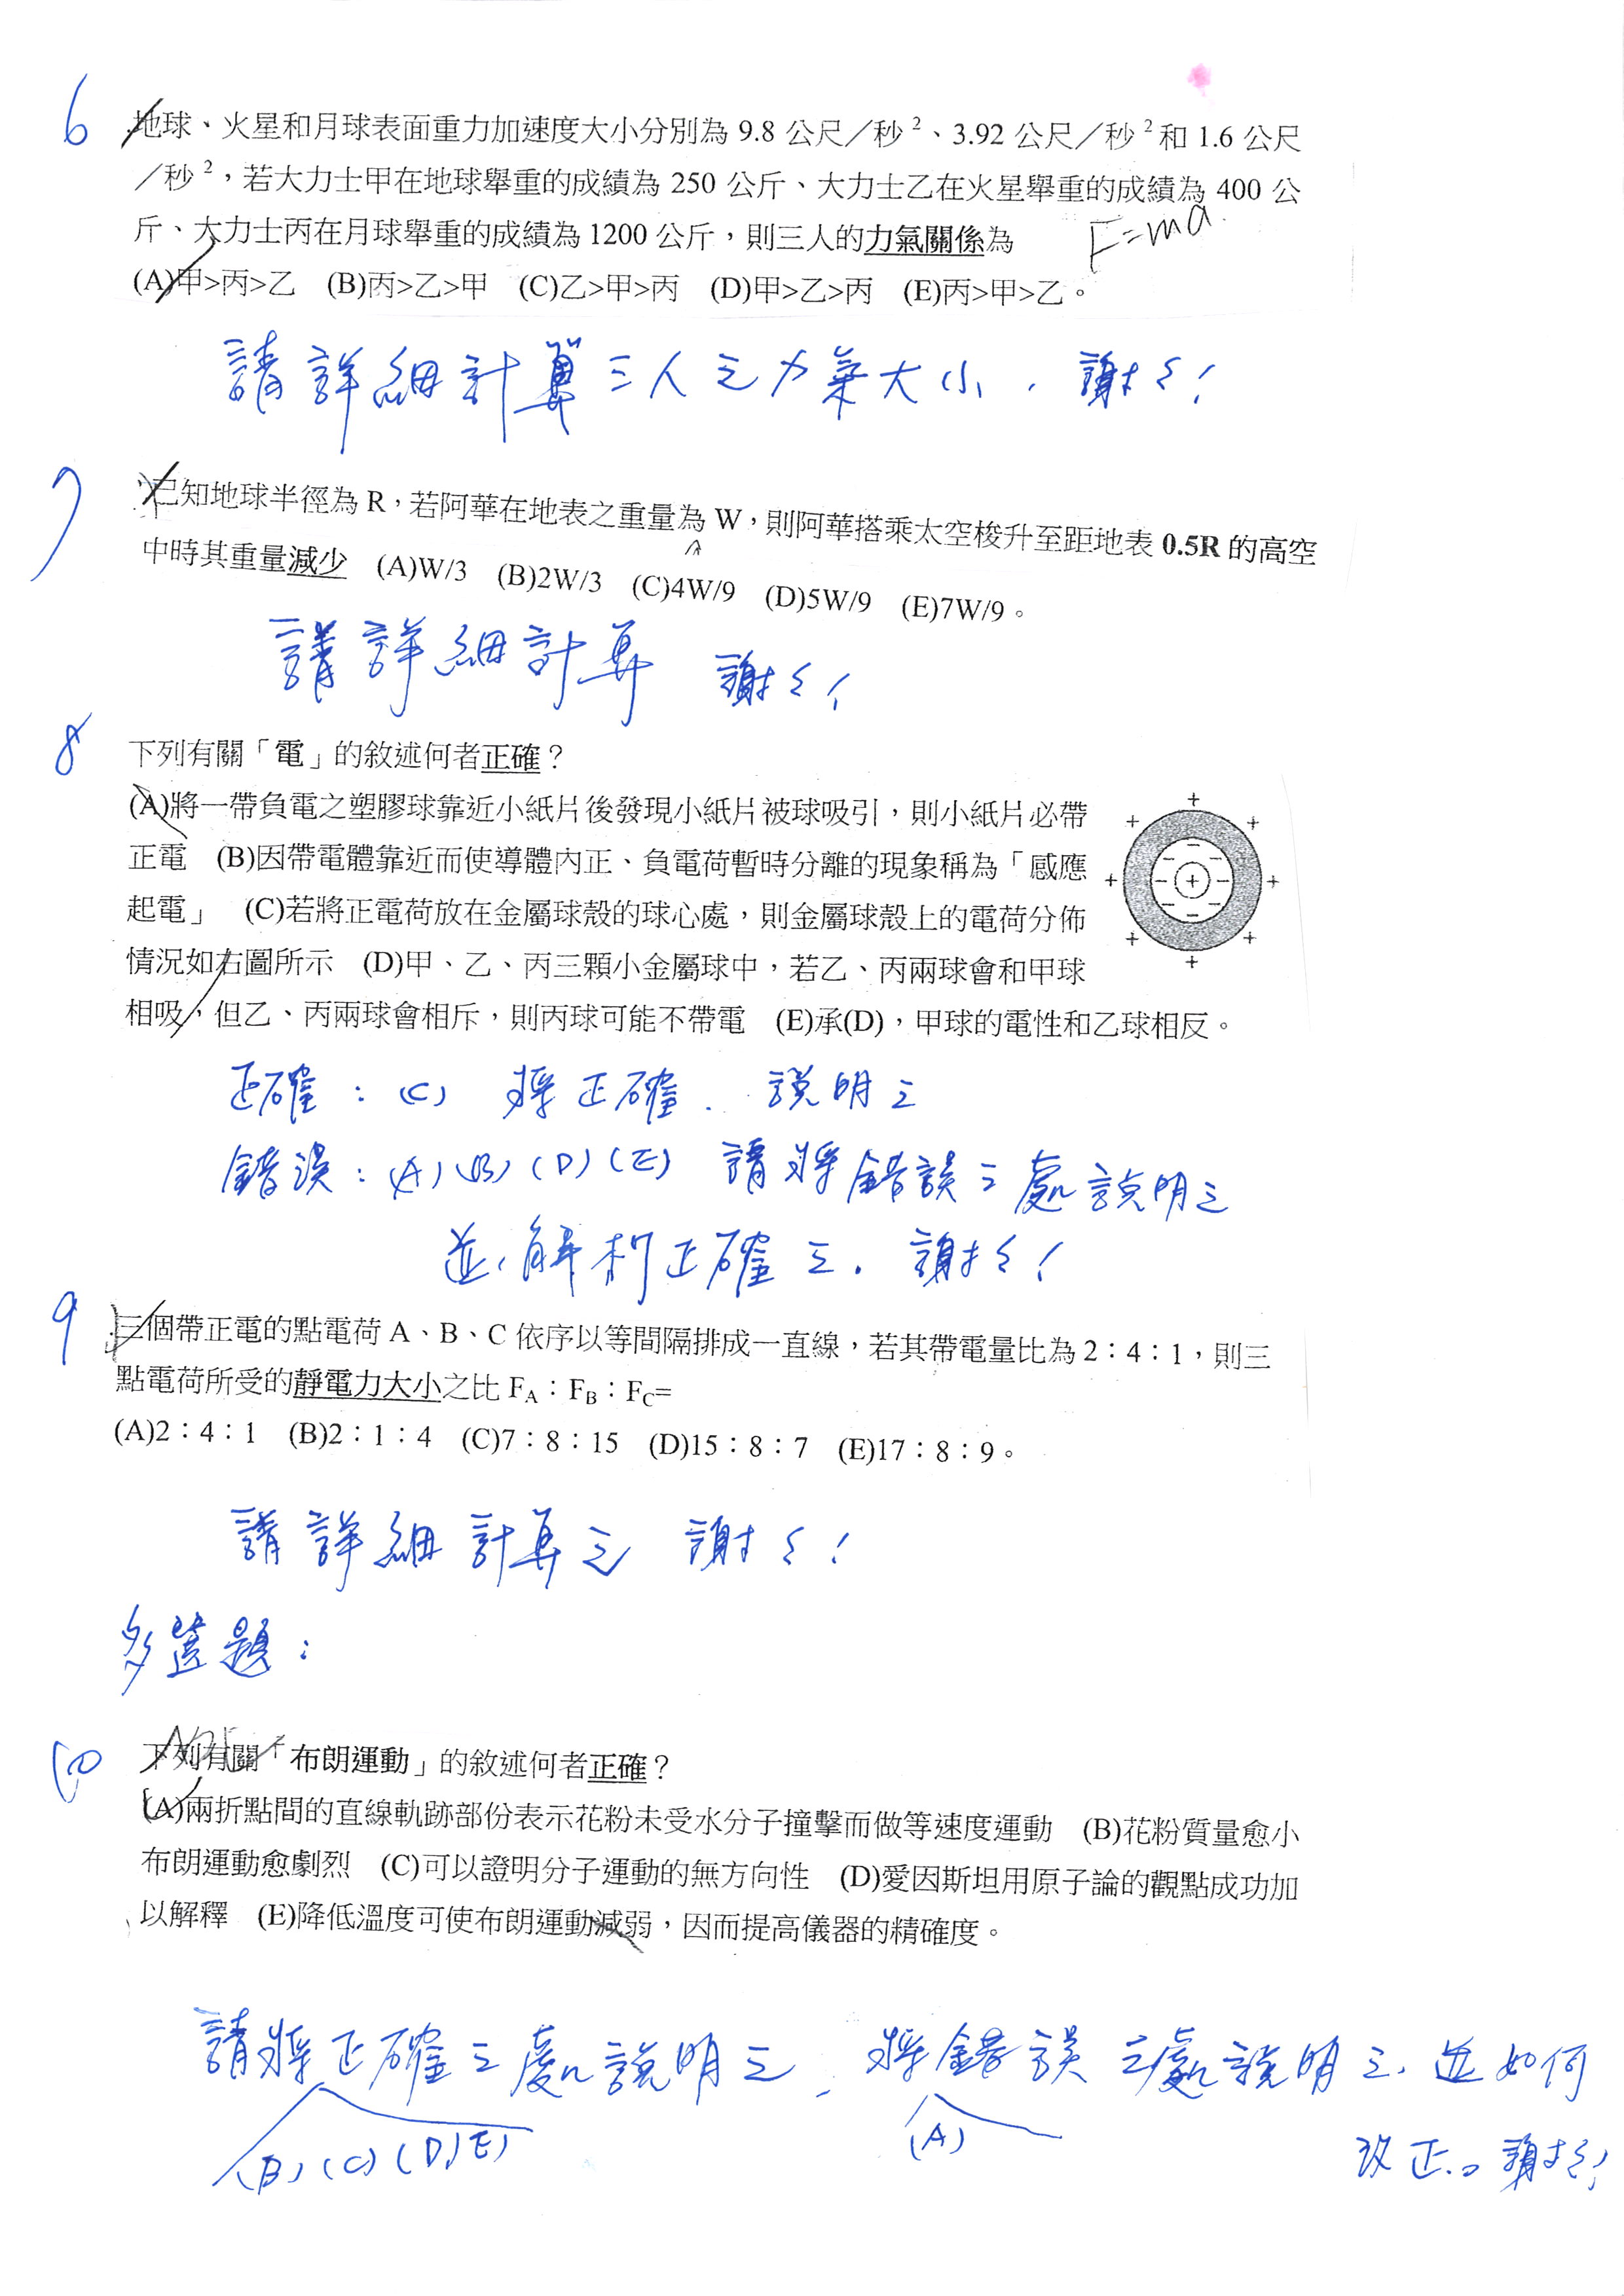 6 地球、火星和月球表面重力加速度大小分別為 9.8 公尺／秒²、3.92 公尺／秒² 和 1.6 公尺
／秒²，若大力士甲在地球舉重的成績為 250 公斤、大力士乙在火星舉重的成績為 400 公
斤、大力士丙在月球舉重的成績為 1200 公斤，則三人的力氣關係為
F=ma
(A)甲>丙>乙 (B)丙>乙>甲 (C)乙>甲>丙 (D)甲>乙>丙 (E)丙>甲>乙。
請詳細計算三人之力氣大小，謝々！
7 已知地球半徑為 R，若阿華在地表之重量為 W，則阿華搭乘太空梭升至距地表 0.5R 的高空
中時其重量減少 (A)W/3 (B)2W/3 (C)4W/9 (D)5W/9 (E)7W/9。
請詳細計算 謝々！
8 下列有關「電」的敘述何者正確？
(A)將一帶負電之塑膠球靠近小紙片後發現小紙片被球吸引，則小紙片必帶
正電 (B)因帶電體靠近而使導體內正、負電荷暫時分離的現象稱為「感應
起電」 (C)若將正電荷放在金屬球殼的球心處，則金屬球殼上的電荷分佈
情況如右圖所示 (D)甲、乙、丙三顆小金屬球中，若乙、丙兩球會和甲球
相吸，但乙、丙兩球會相斥，則丙球可能不帶電 (E)承(D)，甲球的電性和乙球相反。
正確：(C) 將正確．說明之
錯誤：(A)(B)(D)(E) 請將錯誤之處說明之
並解析正確之．謝々！
9 三個帶正電的點電荷 A、B、C 依序以等間隔排成一直線，若其帶電量比為 2：4：1，則三
點電荷所受的靜電力大小之比 FA：FB：FC=
(A)2：4：1 (B)2：1：4 (C)7：8：15 (D)15：8：7 (E)17：8：9。
請詳細計算之 謝々！
多選題：
10 下列有關「布朗運動」的敘述何者正確？
(A)兩折點間的直線軌跡部份表示花粉未受水分子撞擊而做等速度運動 (B)花粉質量愈小
布朗運動愈劇烈 (C)可以證明分子運動的無方向性 (D)愛因斯坦用原子論的觀點成功加
以解釋 (E)降低溫度可使布朗運動減弱，因而提高儀器的精確度。
請將正確之處說明之，將錯誤之處說明之，並如何
(B)(C)(D)(E) (A)
改正。謝々！